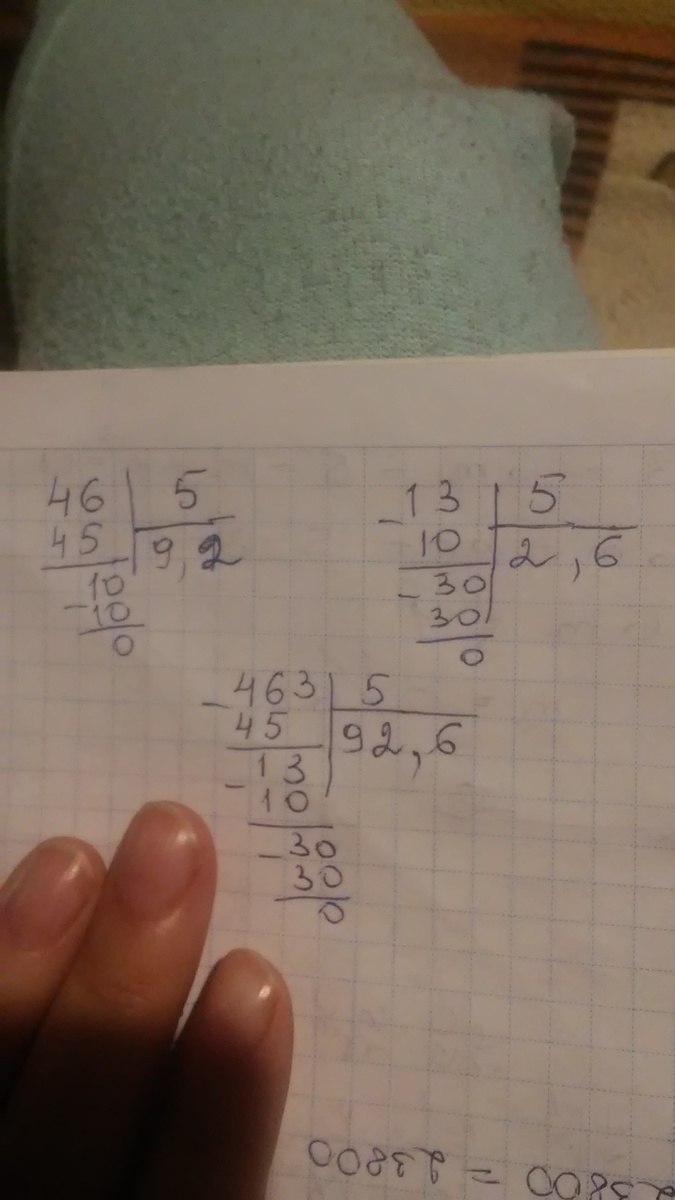 46 5
45 9,2
-10
10
0
-13 5
10 2,6
-30
30
0
-463 5
45 92,6
-13
10
-30
30
0
23800 = 23800